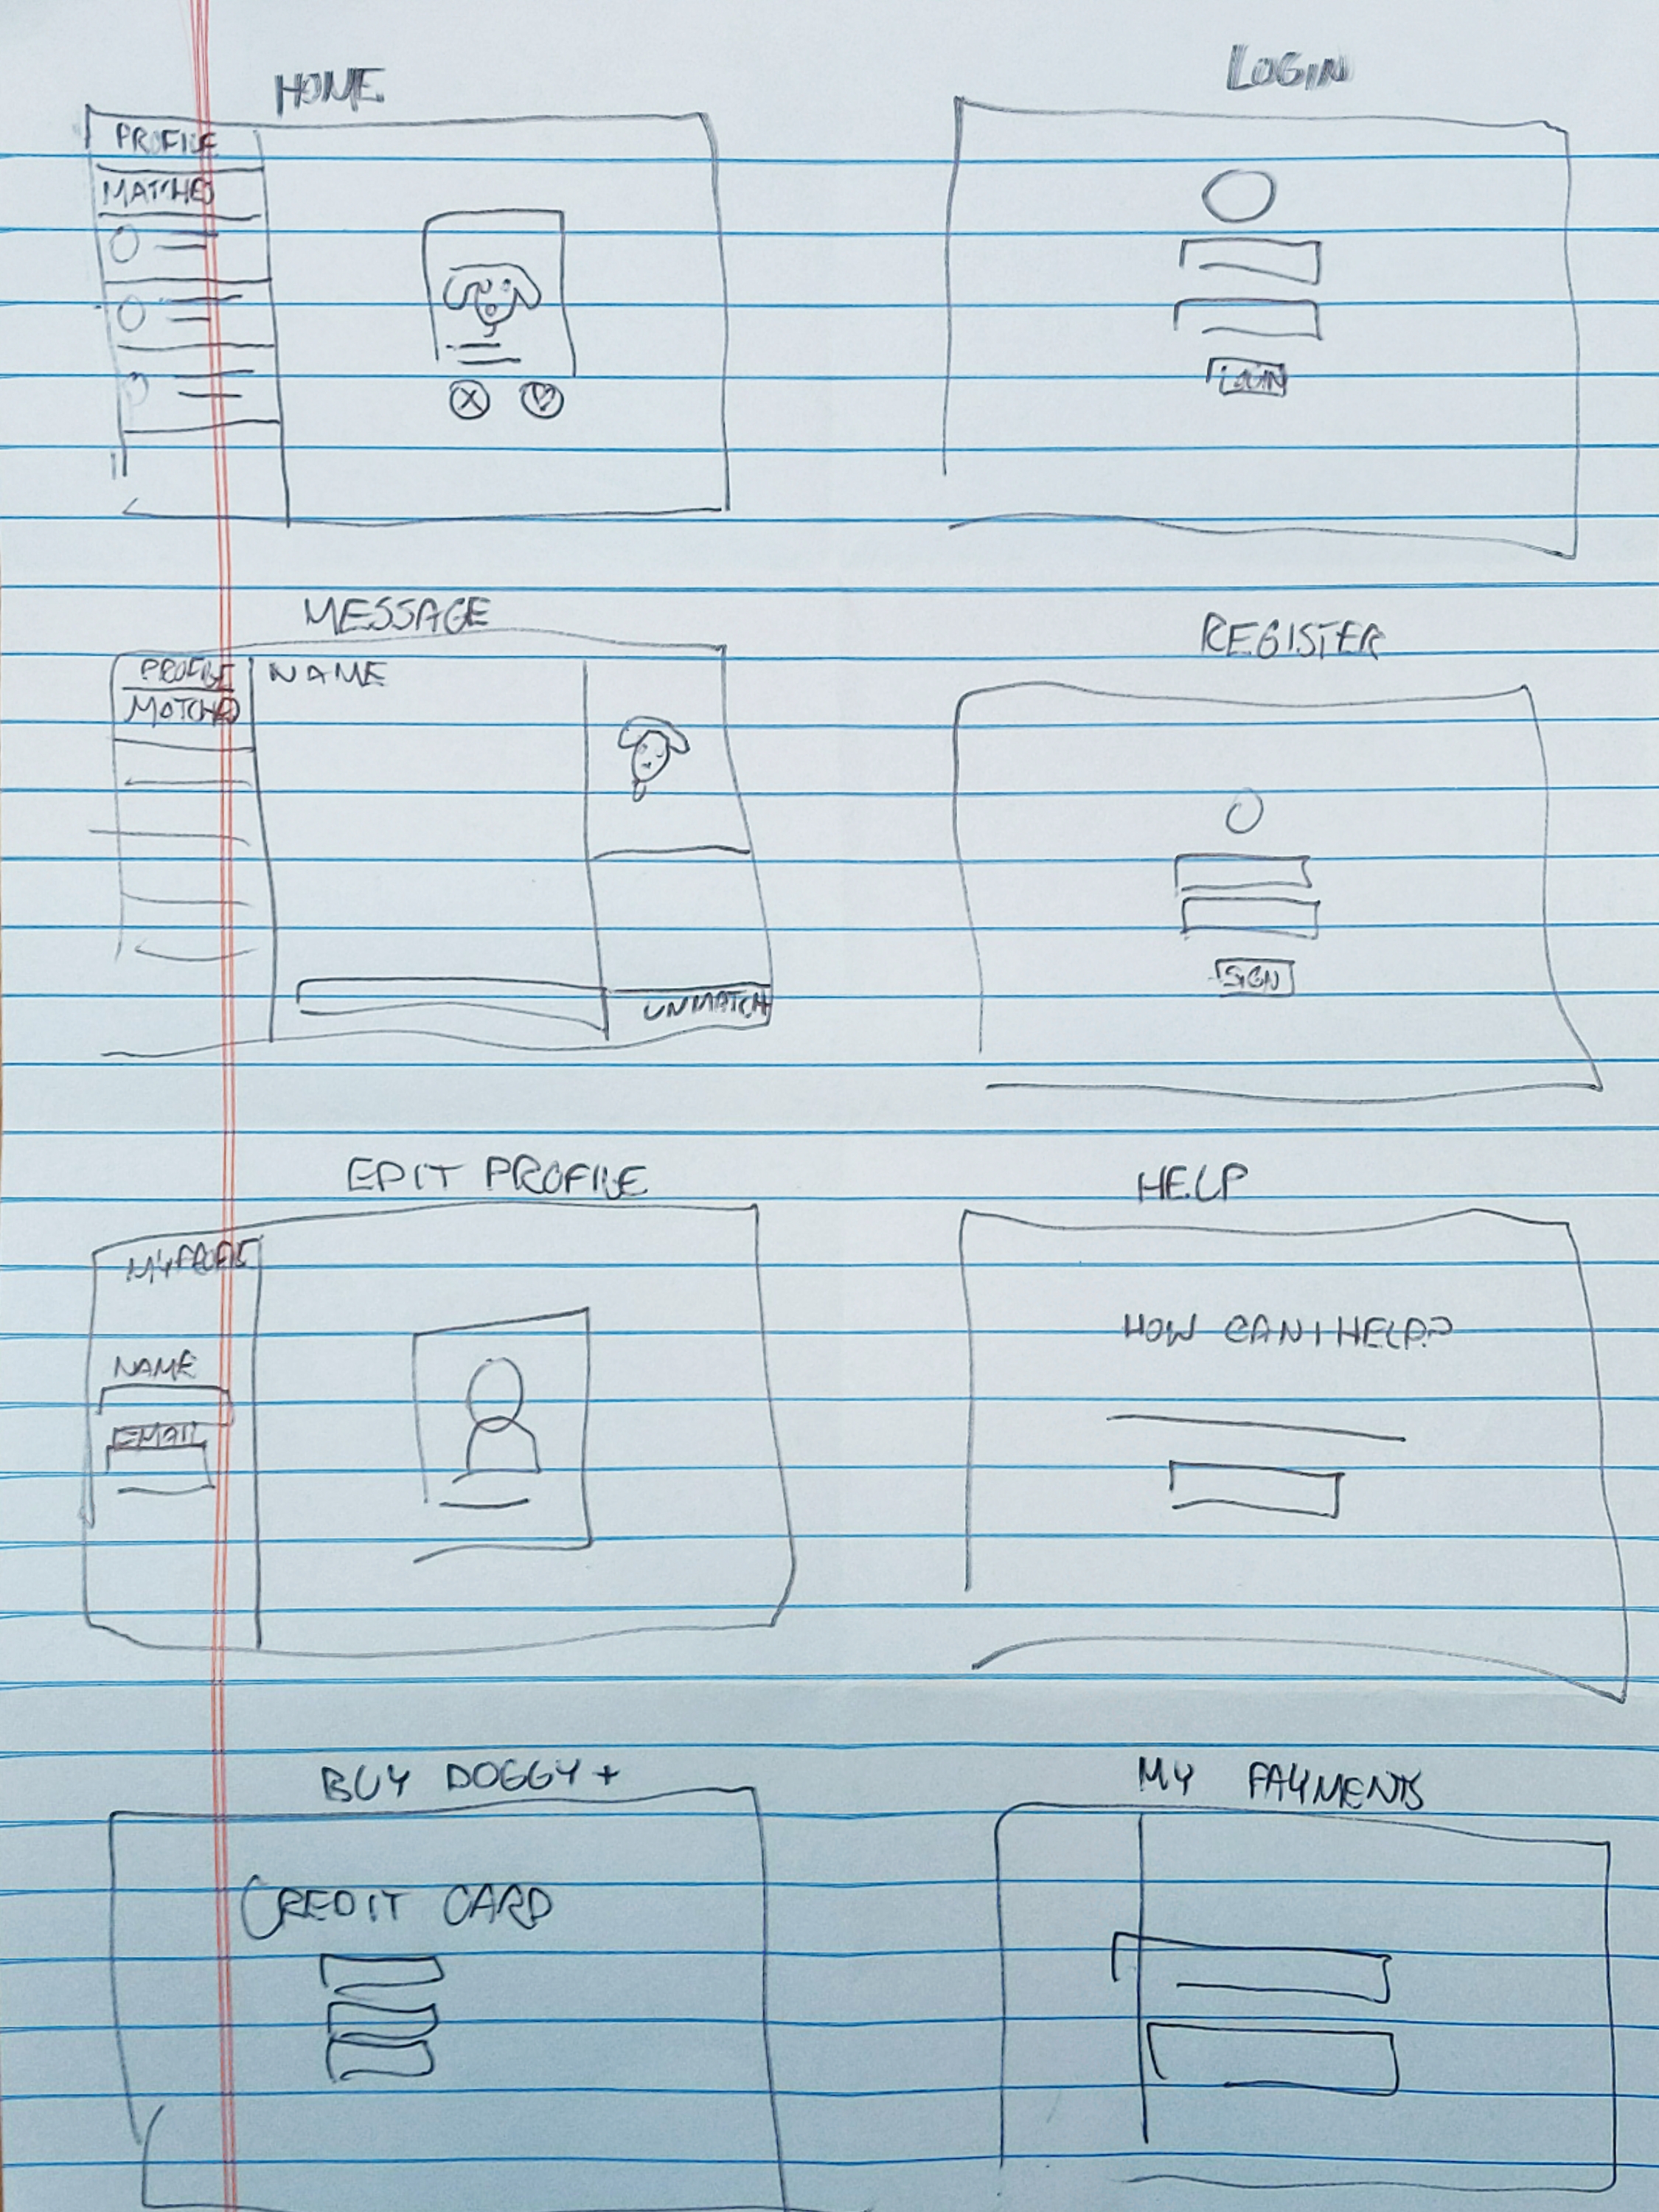 HOME
PROFILE
MATCHES
LOGIN
LOGIN
MESSAGE
PROFILE
MATCHES
NAME
UNMATCH
REGISTER
SIGN
EDIT PROFILE
MY PROFILE
NAME
EMAIL
HELP
HOW CAN I HELP?
BUY DOGGY+
CREDIT CARD
MY PAYMENTS